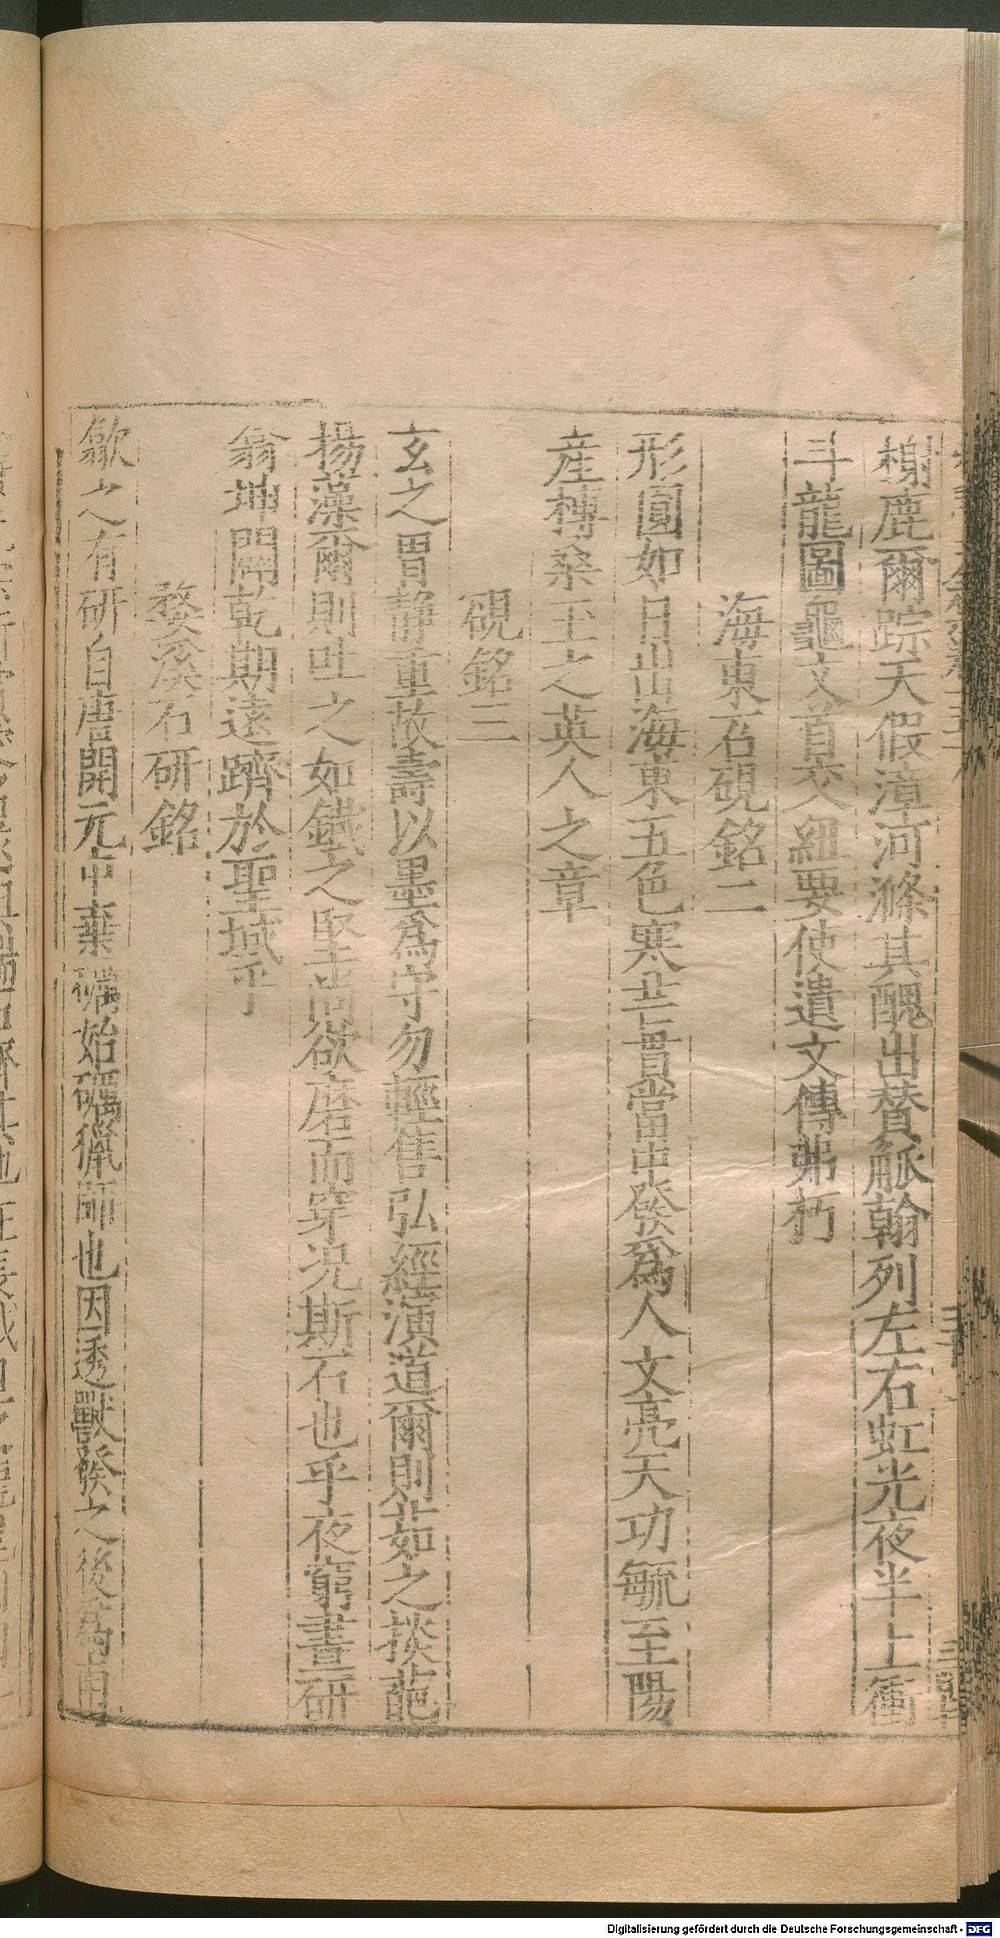 榭鹿爾踪天假漳河滌其醜出賛觚翰列左右虹光夜半上衝
斗龍圖龜文首
紐要使遺文傳弗朽
海東石硯銘二
形圓如日出海東五色寒芒貫當中發爲人文亮天功毓至陽
産榑桑王之英人之章
硯銘三
玄之胃静重故壽以墨爲守勿輕售弘經演道爾則茹之掞葩
揚藻爾則吐之如鐵之堅尚欲磨而穿况斯石也乎夜窮晝研
翕坤闢乾期遠躋於聖域乎
婺溪石研銘
歙之有研自唐開元中葉
始
獵師也因透獸發之後
Digitalisierung gefördert durch die Deutsche Forschungsgemeinschaft - DFG